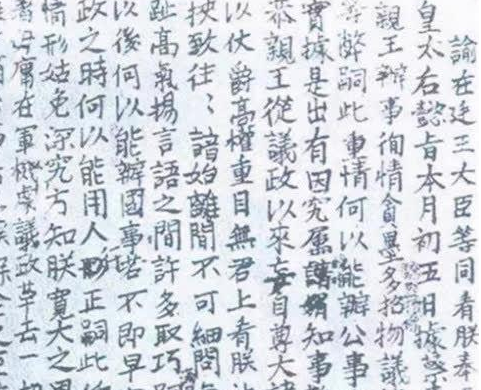 諭在廷王大臣等同看朕奉
皇太后懿旨本月初五日據蔡
親王辦事徇情貪墨多招物議
等弊嗣此事情何以能辦公事
實據是出有因究屬知事
恭親王從議政以來妄自尊大
以仗爵高權重目無君上看朕
挾致往〻諳始離間不可細問
趾高氣揚言語之間許多取巧
以後何以能辦國事若不即早
政之時何以能用人正嗣此
情形姑免深究方知朕寬大之
毋庸在軍機處議政革去一